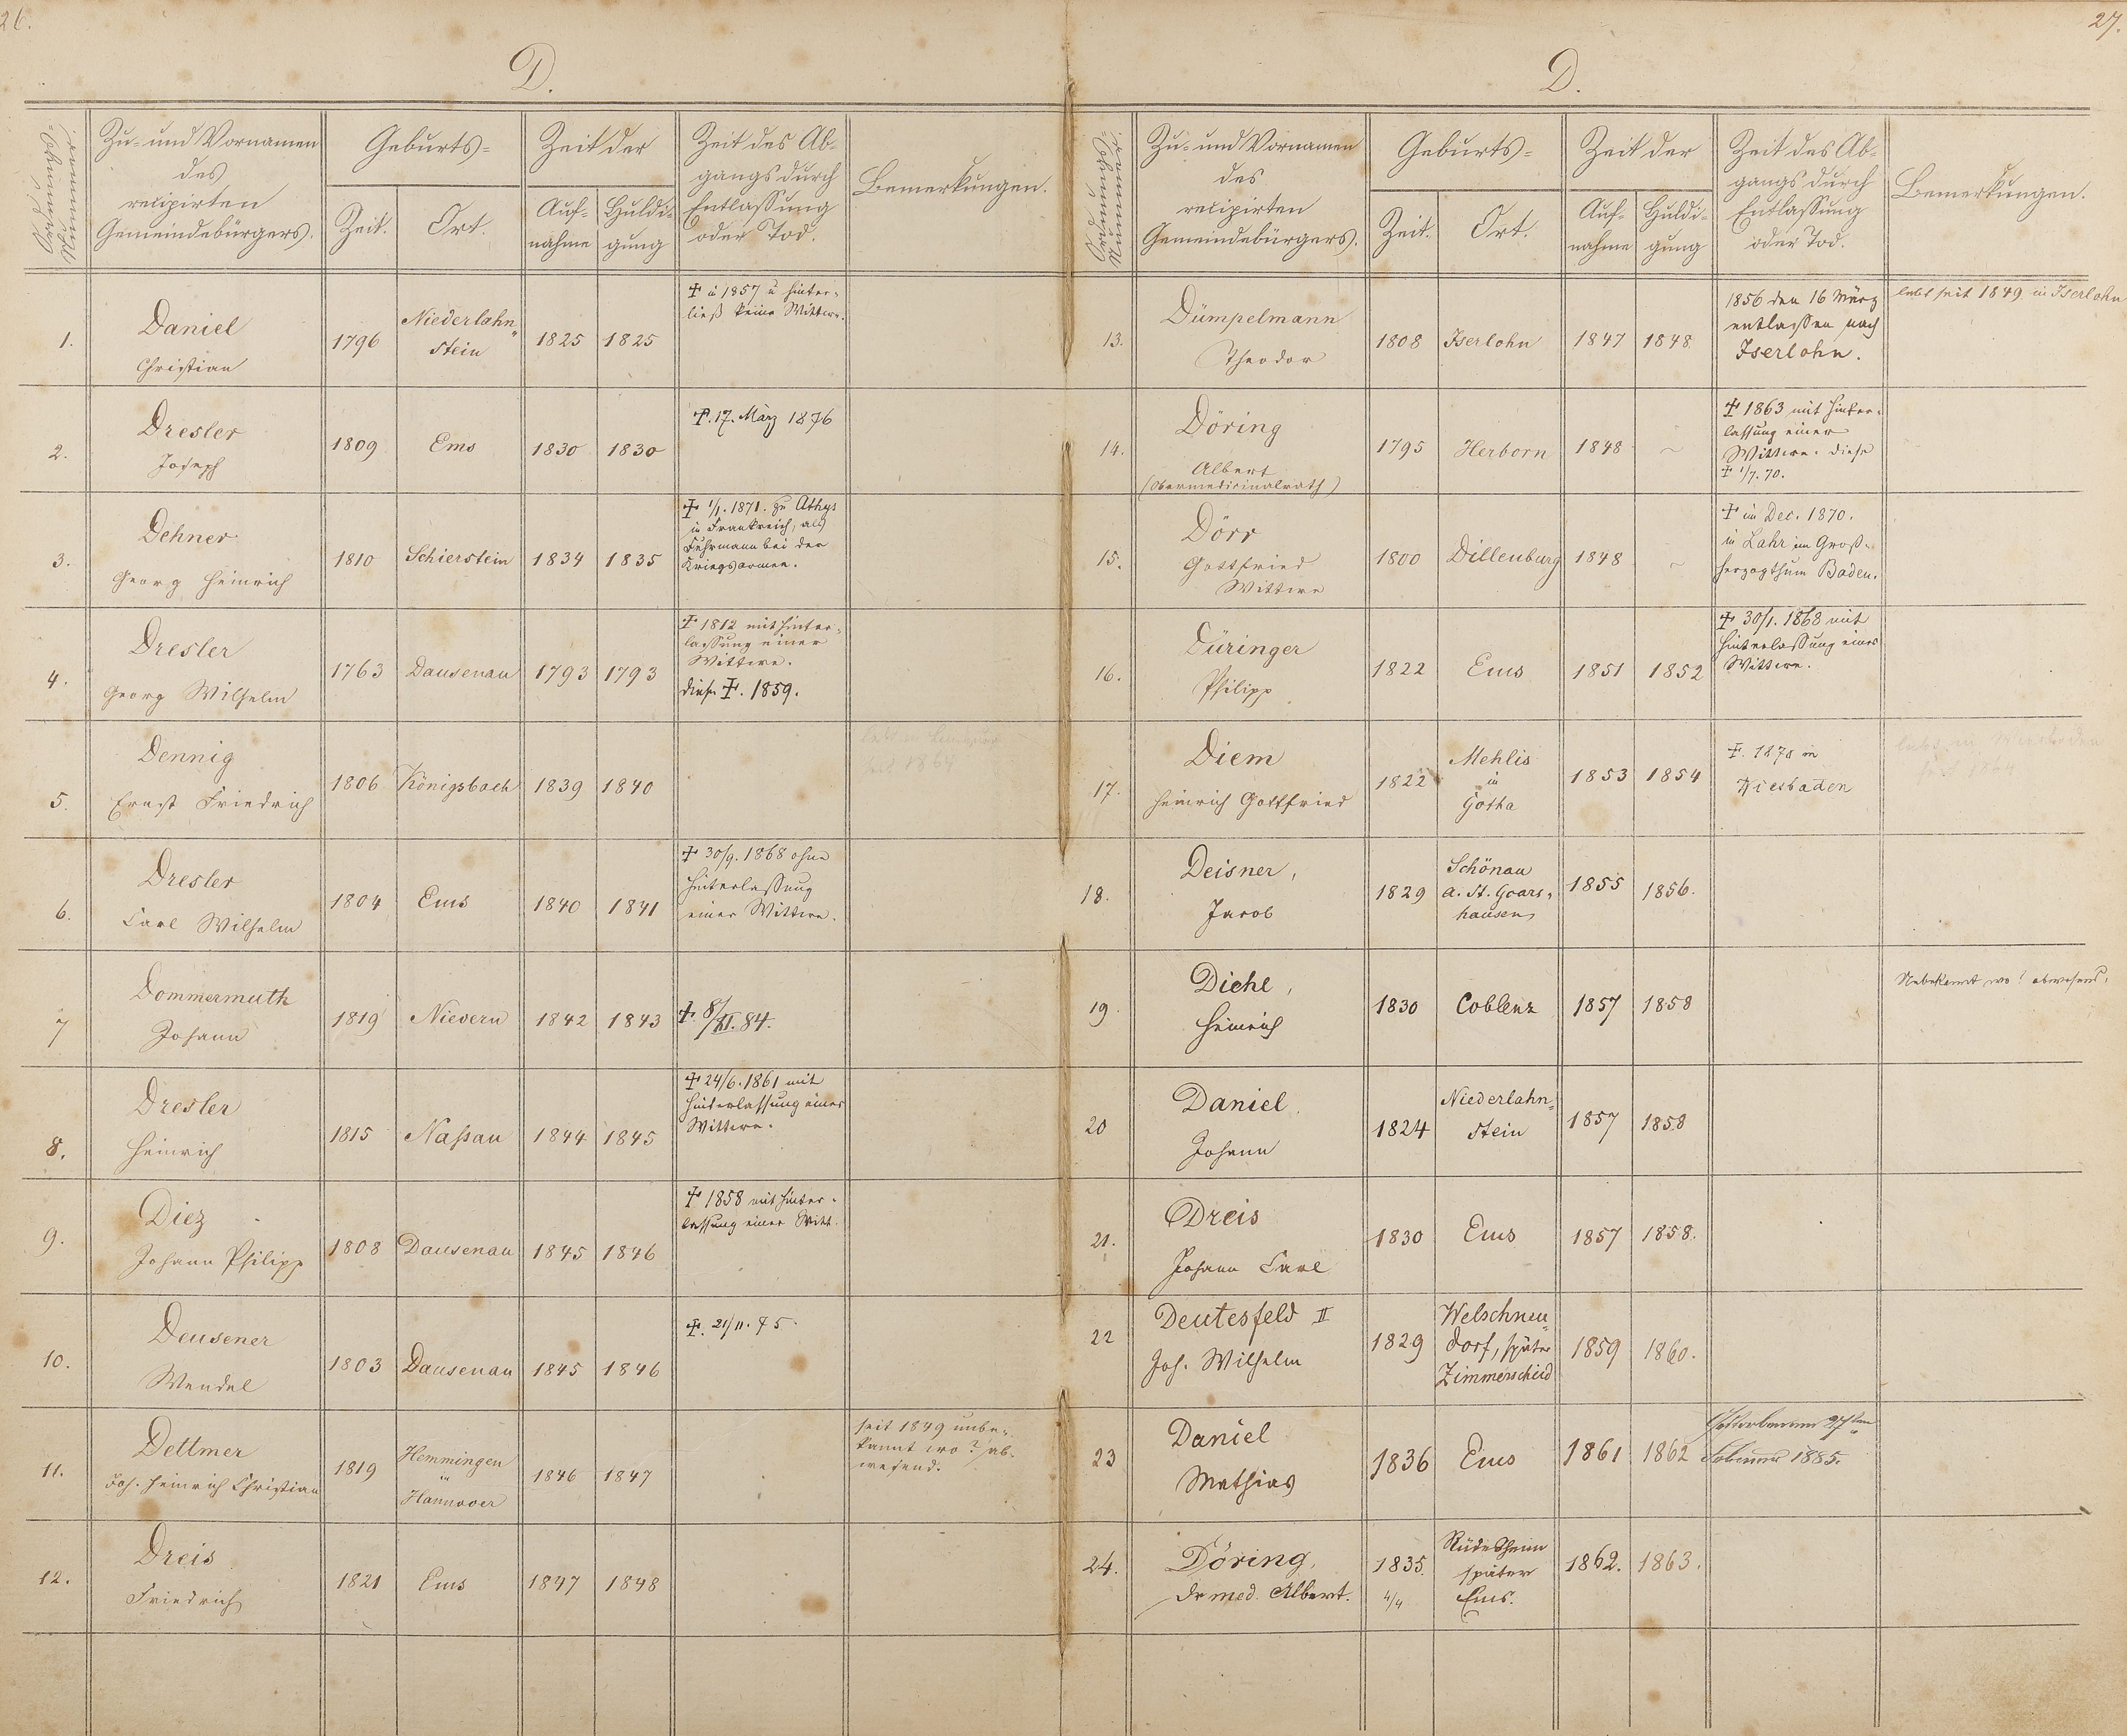 26.
D.
Ordnungs-
Nummer.
Zu- und Vornamen
des
recipirten
Gemeindebürgers.
Geburts-
Zeit.
Ort.
Zeit der
Auf-
nahme
Huldi-
gung
Zeit des Ab-
gangs durch
Entlassung
oder Tod.
Bemerkungen.
1.
Daniel
Christian
1796
Niederlahn-
stein
1825
1825
† in 1857 u hinter-
ließ keine Wittwe.
2.
Dresler
Joseph
1809
Ems
1830
1830
†. 17. März 1876
3.
Dehner
Georg Heinrich
1810
Schierstein
1834
1835
† 1/1. 1871. zu Athys
in Frankreich, als
Fuhrmann bei der
Kriegsarmee.
4.
Dresler
Georg Wilhelm
1763
Dausenau
1793
1793
† 1812 mit Hinter-
lassung einer
Wittwe.
diese †. 1859.
5.
Dennig
Ernst Friedrich
1806
Königsbach
1839
1840
lebt in
seit 1864
6.
Dresler
Carl Wilhelm
1804
Ems
1840
1841
† 30/9. 1868 ohne
Hinterlassung
einer Wittwe.
7
Dommermuth
Johann
1819
Nievern
1842
1843
†. 8/XI. 84.
8.
Dresler
Heinrich
1815
Naßau
1844
1845
† 24/6. 1861 mit
Hinterlassung einer
Wittwe.
9.
Diez
Johann Philipp
1808
Dausenau
1845
1846
† 1858 mit Hinter-
lassung einer Witt.
10.
Deusener
Wendel
1803
Dausenau
1845
1846
†. 21/11. 75.
11.
Dettmer
Joh. Heinrich Christian
1819
Hemmingen
in
Hannover
1846
1847
seit 1849 unbe-
kannt wo? ab-
wesend.
12.
Dreis
Friedrich
1821
Ems
1847
1848
27.
D.
Ordnungs-
Nummer.
Zu- und Vornamen
des
recipirten
Gemeindebürgers.
Geburts-
Zeit.
Ort.
Zeit der
Auf-
nahme
Huldi-
gung
Zeit des Ab-
gangs durch
Entlassung
oder Tod.
Bemerkungen.
13.
Dümpelmann
Theodor
1808
Iserlohn
1847
1848
1856 den 16 März
entlassen nach
Iserlohn.
lebt seit 1849 in Iserlohn
14.
Döring
Albert
(Obermedicinalrath)
1795
Herborn
1848
~
† 1863 mit Hinter-
lassung einer
Wittwe. diese
† 1/7. 70.
15.
Dörr
Gottfried
Wittwe
1800
Dillenburg
1848
~
† im Dec. 1870.
in Lahr im Groß-
herzogthum Baden.
16.
Düringer
Philipp
1822
Ems
1851
1852
† 30/1. 1868 mit
Hinterlassung einer
Wittwe.
17.
Diem
Heinrich Gottfried
1822
Mehlis
in
Gotha
1853
1854
†. 1878 in
Wiesbaden
lebt in Wiesbaden
seit 1864
18.
Deisner,
Jacob
1829
Schönau
a. St. Goars-
hausen
1855
1856.
19.
Diehl,
Heinrich
1830
Coblenz
1857
1858
Unbekannt wo? abwesend.
20
Daniel
Johann
1824
Niederlahn-
stein
1857
1858
21.
Dreis
Johann Carl
1830
Ems
1857
1858.
22
Deutesfeld II
Joh. Wilhelm
1829
Welschneu-
dorf, später
Zimmerschied
1859
1860.
23
Daniel
Mathias
1836
Ems
1861
1862
Gestorben am 27ten
Februar 1885.
24.
Döring,
Dr med. Albert.
1835.
4/4
Rüdesheim
später
Ems.
1862.
1863.